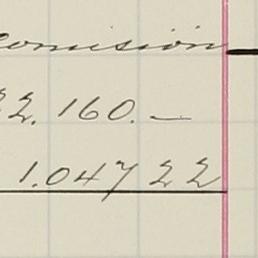 comisión
22. 160. —
1.047 22